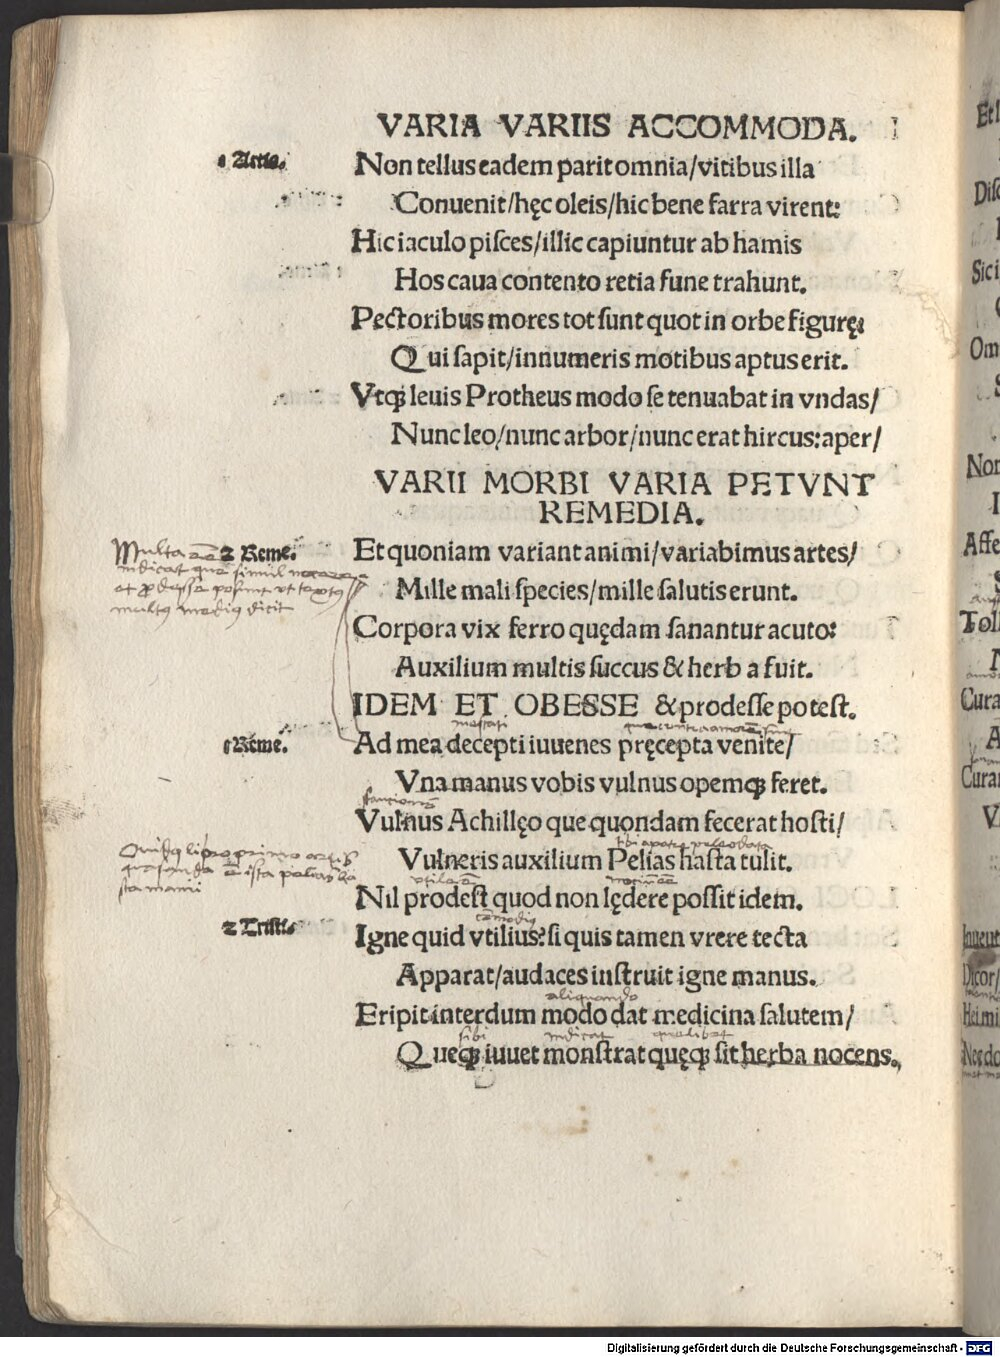 VARIA VARIIS ACCOMMODA.
1 Artis.
Non tellus eadem parit omnia/vitibus illa
Conuenit/hęc oleis/hic bene farra virent:
Hic iaculo piſces/illic capiuntur ab hamis
Hos caua contento retia fune trahunt.
Pectoribus mores tot ſunt quot in orbe figurę:
Qui ſapit/innumeris motibus aptus erit.
Vtqȝ leuis Protheus modo ſe tenuabat in vndas/
Nunc leo/nunc arbor/nunc erat hircus: aper/
VARII MORBI VARIA PETVNT
REMEDIA.
2 Reme.
Et quoniam variant animi/variabimus artes/
Mille mali ſpecies/mille ſalutis erunt.
Corpora vix ferro quędam ſanantur acuto:
Auxilium multis ſuccus & herba fuit.
IDEM ET OBESSE & prodeſſe poteſt.
1 Reme.
Ad mea decepti iuuenes pręcepta venite/
Vna manus vobis vulnus opemqȝ feret.
Vulnus Achillęo que quondam fecerat hoſti/
Vulneris auxilium Pelias haſta tulit.
vtile
Nil prodeſt quod non lędere poſſit idem.
2 Triſti.
Igne quid vtilius? ſi quis tamen vrere tecta
Apparat/audaces inſtruit igne manus.
aliquando
Eripit interdum modo dat medicina ſalutem/
sibi indicat quelibet
Queqȝ iuuet monſtrat quęqȝ ſit herba nocens.
Digitalisierung gefördert durch die Deutsche Forschungsgemeinschaft - DFG